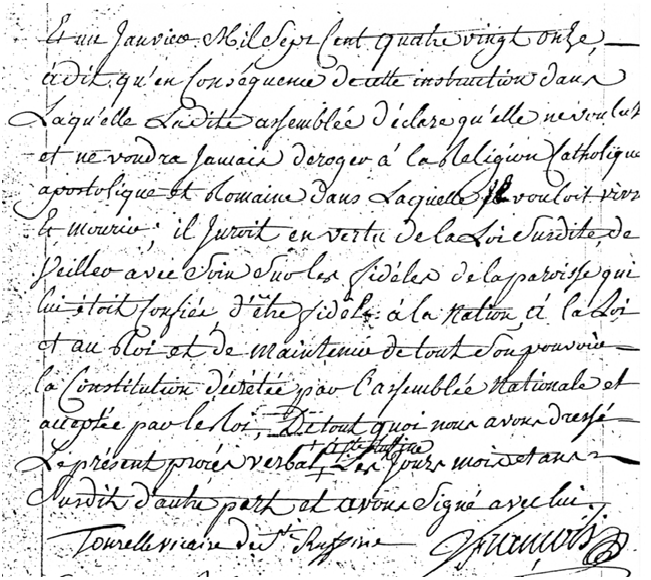 Et un Janvier Mil Sept Cent quatre vingt onze,
a dit qu'en Conséquence de cette instruction dans
Laqu'elle Ladite assemblée d'éclare qu'elle ne voulut
et ne voudra Jamais deroger á la Religion Catholique
apostolique et Romaine dans Laquelle il vouloit vivre
Et mourir; il Juroit en vertu de la Loi Surdite, de
Veiller avec Soin Sur les fidéles de la paroisse qui
lui étoit Confiée, d'être fidéle á la Nation, á la Loi
et au Roi et de maintenir de tout Son pouvoir
la Constitution décrétée par l'assemblée Nationale et
acceptée par le Roi, De tout quoi nous avons dressé
Le présent procés verbal, Les Jours mois et ans
Surdit d'autre part et avons Signé avec lui,
Tourelle vicaire de Ste Ruffine françois